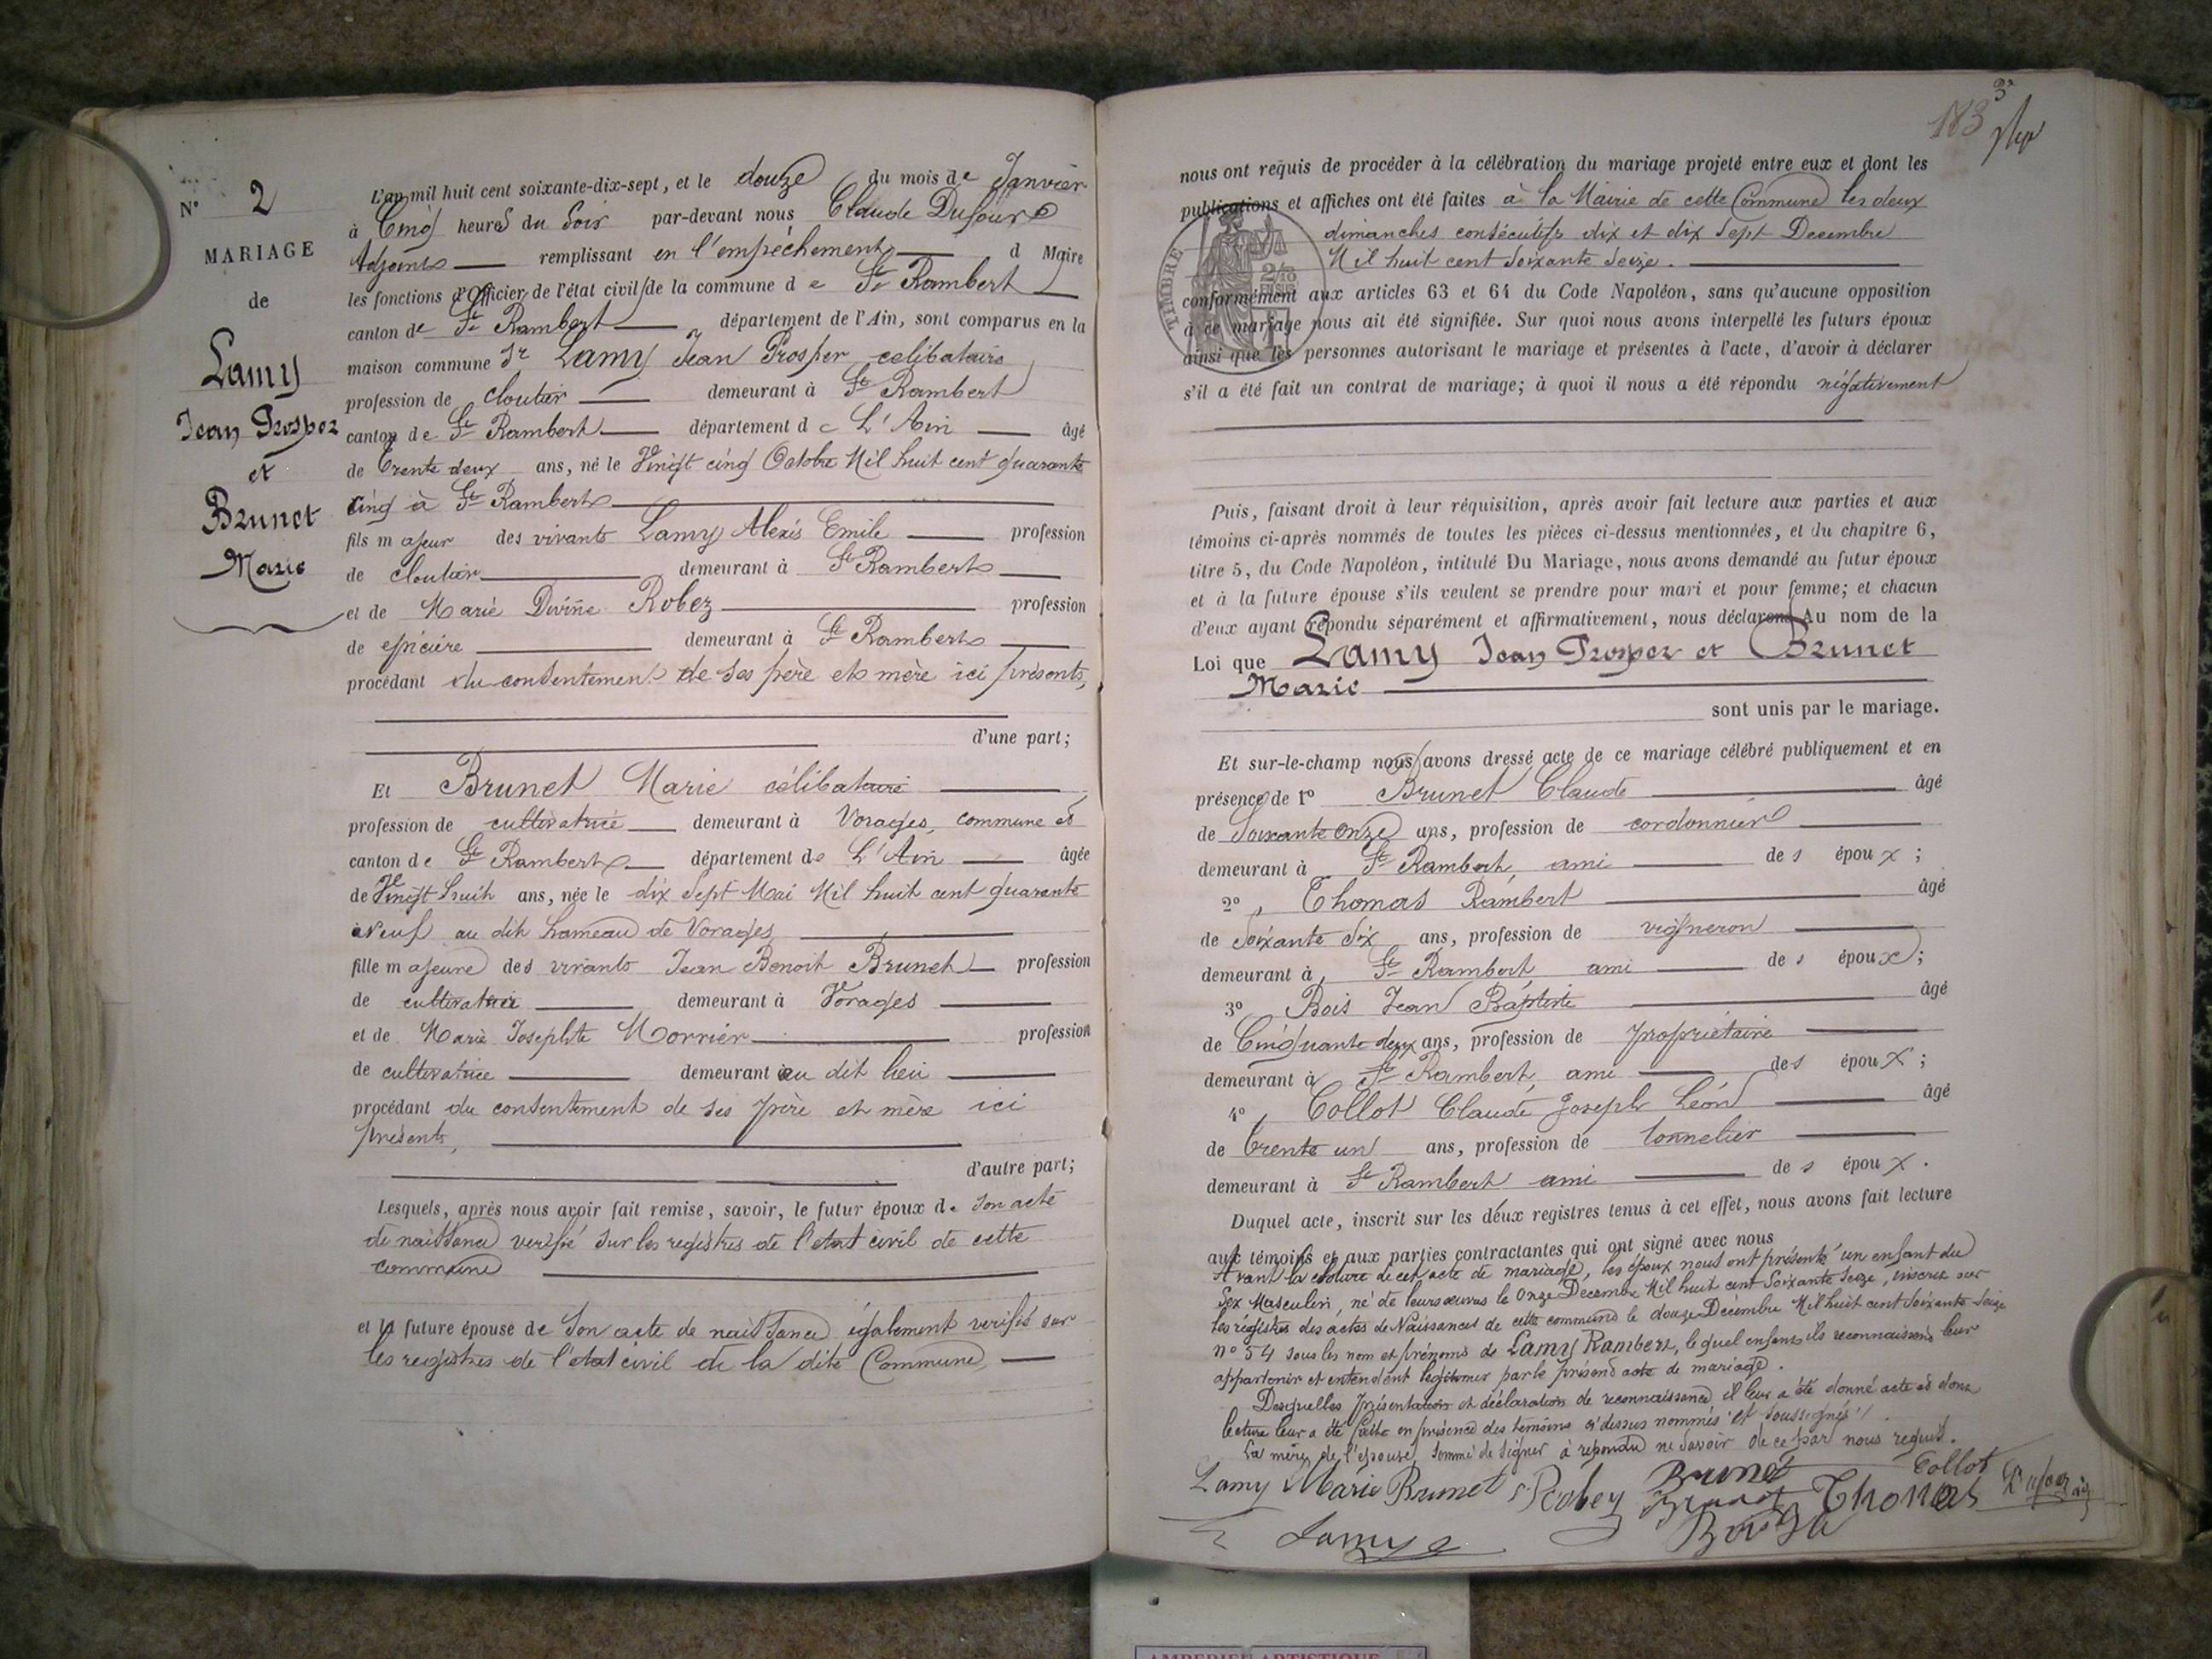 N° 2
MARIAGE
de
Lamy
Jean Prosper
et
Brunet
Marie
L'an mil huit cent soixante-dix-sept, et le douze du mois de Janvier
à Cinq heures du Soir par-devant nous Claude Dufour
Adjoint remplissant en l'empêchement d Maire
les fonctions d'Officier de l'état civil de la commune de St Rambert
canton de St Rambert département de l'Ain, sont comparus en la
maison commune Sr Lamy Jean Prosper célibataire
profession de cloutier demeurant à St Rambert
canton de St Rambert département de L'Ain âgé
de trente deux ans, né le Vingt cinq Octobre Mil huit cent quarante
cinq à St Rambert
fils majeur des vivants Lamy Alexis Emile profession
de cloutier demeurant à St Rambert
et de Marie Divine Robez profession
de epicière demeurant à St Rambert
procédant du consentement de ses père et mère ici présents,
d'une part;
Et Brunet Marie célibataire
profession de cultivatrice demeurant à Vorages, commune et
canton de St Rambert département de L'Ain âgée
de Vingt huit ans, née le dix Sept Mai Mil huit cent quarante
neuf au dit hameau de Vorages
fille majeure des vivants Jean Benoit Brunet profession
de cultivateur demeurant à Vorages
et de Marie Josephte Morrier profession
de cultivatrice demeurant au dit lieu
procédant du consentement de ses père et mère ici
présents,
d'autre part;
Lesquels, après nous avoir fait remise, savoir, le futur époux de son acte
de naissance verifié sur les registres de l'etat civil de cette
commune
et la future épouse de Son acte de naissance également verifié sur
les registres de l'etat civil de la dite Commune
183
3
nous ont requis de procéder à la célébration du mariage projeté entre eux et dont les
publications et affiches ont été faites à la Mairie de cette Commune les deux
dimanches consécutifs dix et dix Sept Decembre
Mil huit cent Soixante Seize.
TIMBRE
2/10
conformément aux articles 63 et 64 du Code Napoléon, sans qu'aucune opposition
à ce mariage nous ait été signifiée. Sur quoi nous avons interpellé les futurs époux
ainsi que les personnes autorisant le mariage et présentes à l'acte, d'avoir à déclarer
s'il a été fait un contrat de mariage; à quoi il nous a été répondu négativement
Puis, faisant droit à leur réquisition, après avoir fait lecture aux parties et aux
témoins ci-après nommés de toutes les pièces ci-dessus mentionnées, et du chapitre 6,
titre 5, du Code Napoléon, intitulé Du Mariage, nous avons demandé au futur époux
et à la future épouse s'ils veulent se prendre pour mari et pour femme; et chacun
d'eux ayant répondu séparément et affirmativement, nous déclarons Au nom de la
Loi que Lamy Jean Prosper et Brunet
Marie
sont unis par le mariage.
Et sur-le-champ nous avons dressé acte de ce mariage célébré publiquement et en
présence de 1° Brunet Claude âgé
de Soixante Onze ans, profession de cordonnier
demeurant à St Rambert, ami des époux;
2° Thomas Rambert âgé
de Soixante Six ans, profession de vigneron
demeurant à St Rambert, ami des époux;
3° Bois Jean Baptiste âgé
de Cinquante deux ans, profession de propriétaire
demeurant à St Rambert, ami des époux;
4° Collot Claude Joseph Léon âgé
de trente un ans, profession de tonnelier
demeurant à St Rambert ami des époux.
Duquel acte, inscrit sur les deux registres tenus à cet effet, nous avons fait lecture
aux témoins et aux parties contractantes qui ont signé avec nous
Avant la cloture de cet acte de mariage, les époux nous ont présenté un enfant du
Sex Masculin, né de leurs œuvres le Onze Decembre Mil huit cent Soixante Seize, inscrit sur
les registres des actes de Naissances de cette commune le douze Décembre Mil huit cent Soixante Seize
n° 54 sous les nom et prénoms de Lamy Rambert, lequel enfant ils reconnaissent leur
appartenir et entendent légitimer par le présend acte de mariage.
Desquelles présentation et déclaration de reconnaissance il leur a été donné acte et dont
lecture leur a été faite en présence des temoins ci dessus nommés et soussignés
La mère de l'épouse, sommé de signer à répondu ne Savoir de ce par nous requis.
Lamy Marie Brunet Robez Brunet Collot
Brunet Thomas Dufour
Lamy Bois
AMBERIEU ARTISTIQUE